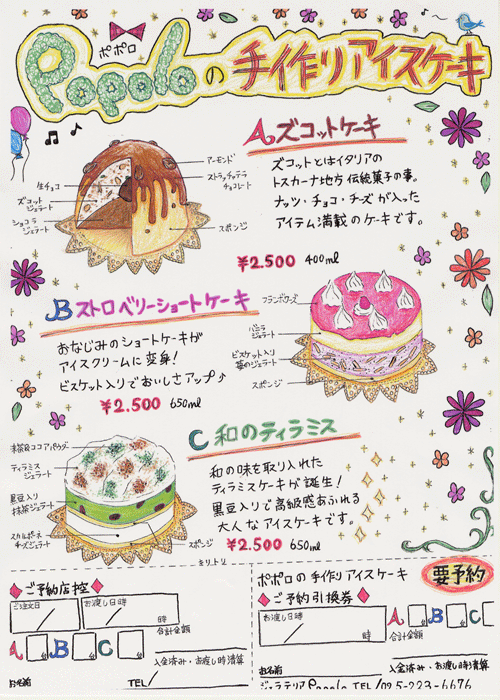 ポポロ
Popoloの手作りアイスケーキ
Aズコットケーキ
ズコットとはイタリアの
トスカーナ地方伝統菓子の事。
ナッツ・チョコ・チーズが入った
アイテム満載のケーキです。
¥2.500 400ml
アーモンド
ストラッチャテラ
チョコレート
スポンジ
生チョコ
ズコット
ジェラート
ショコラ
ジェラート
Bストロベリーショートケーキ
おなじみのショートケーキが
アイスクリームに変身!
ビスケット入りでおいしさアップ♪
¥2.500 650ml
フランボワーズ
バニラ
ジェラート
ビスケット入り
苺のジェラート
スポンジ
C和のティラミス
和の味を取り入れた
ティラミスケーキが誕生!
黒豆入りで高級感あふれる
大人なアイスケーキです。
¥2.500 650ml
抹茶&ココアパウダー
ティラミス
ジェラート
黒豆入り
抹茶ジェラート
マスカルポーネ
チーズジェラート
スポンジ
キリトリ
ご予約店控
ご注文日
/
お渡し日時
/ 時
A 台 B 台 C 台
合計金額
入金済み・お渡し時清算
お名前 TEL/
ポポロの手作りアイスケーキ
要予約
ご予約引換券
お渡し日時
/ 時
A 台 B 台 C 台
合計金額
入金済み・お渡し時清算
お名前
ジェラテリアPopolo TEL/095-223-6676